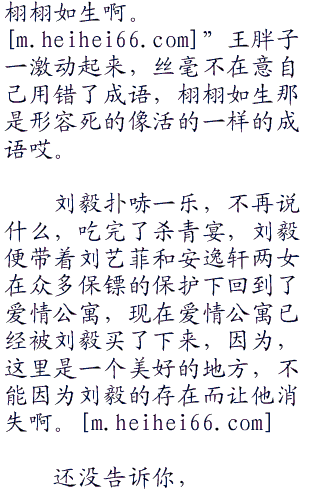 栩栩如生啊。
[m.heihei66.com]”王胖子
一激动起来，丝毫不在意自
己用错了成语，栩栩如生那
是形容死的像活的一样的成
语哎。
刘毅扑哧一乐，不再说
什么，吃完了杀青宴，刘毅
便带着刘艺菲和安逸轩两女
在众多保镖的保护下回到了
爱情公寓，现在爱情公寓已
经被刘毅买了下来，因为，
这里是一个美好的地方，不
能因为刘毅的存在而让他消
失啊。[m.heihei66.com]
还没告诉你，